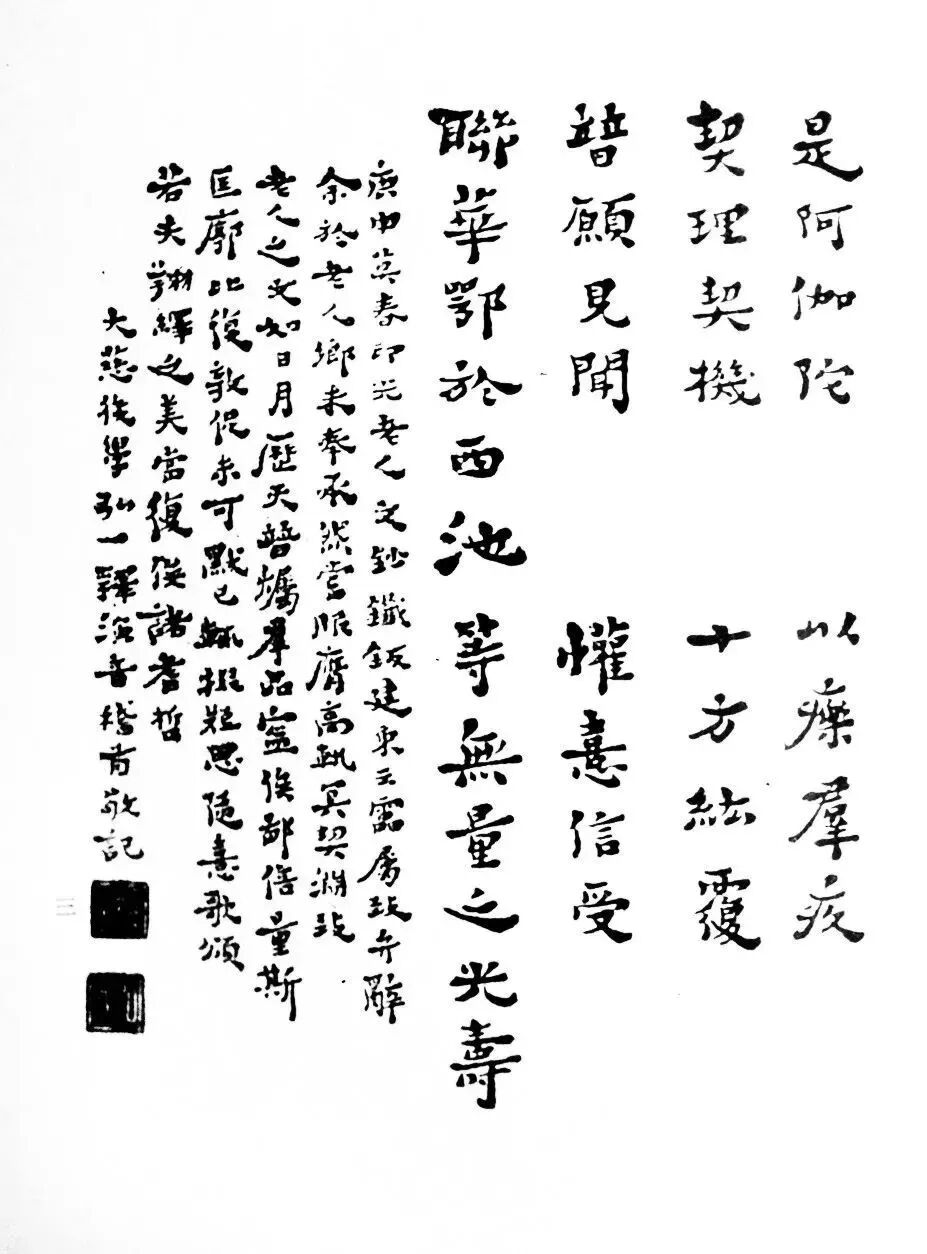 是阿伽陀 以療羣疚
契理契機 十方紘覆
普願見聞 懽憙信受
聯華鄂於西池 等無量之光壽
庚申莫春印光老人文鈔鐫鈑建東云雷屬致弁辭
余於老人鄉未奉承然嘗服膺高軌冥契淵致
老人之文如日月歷天普爥羣品寍俟鄙倍量斯
匡廓比復敦促未可默已輒綴短思隨憙歌頌
若夫翔繹之美當復俟諸耆哲
大慈後學弘一釋演音稽首敬記
三